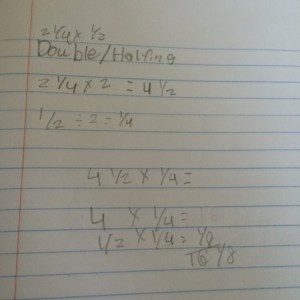 2 1/4 x 1/2
Double/Halfing
2 1/4 x 2 = 4 1/2
1/2 ÷ 2 = 1/4
4 1/2 x 1/4 =
4 x 1/4 =
1/2 x 1/4 = 1/8
1/8